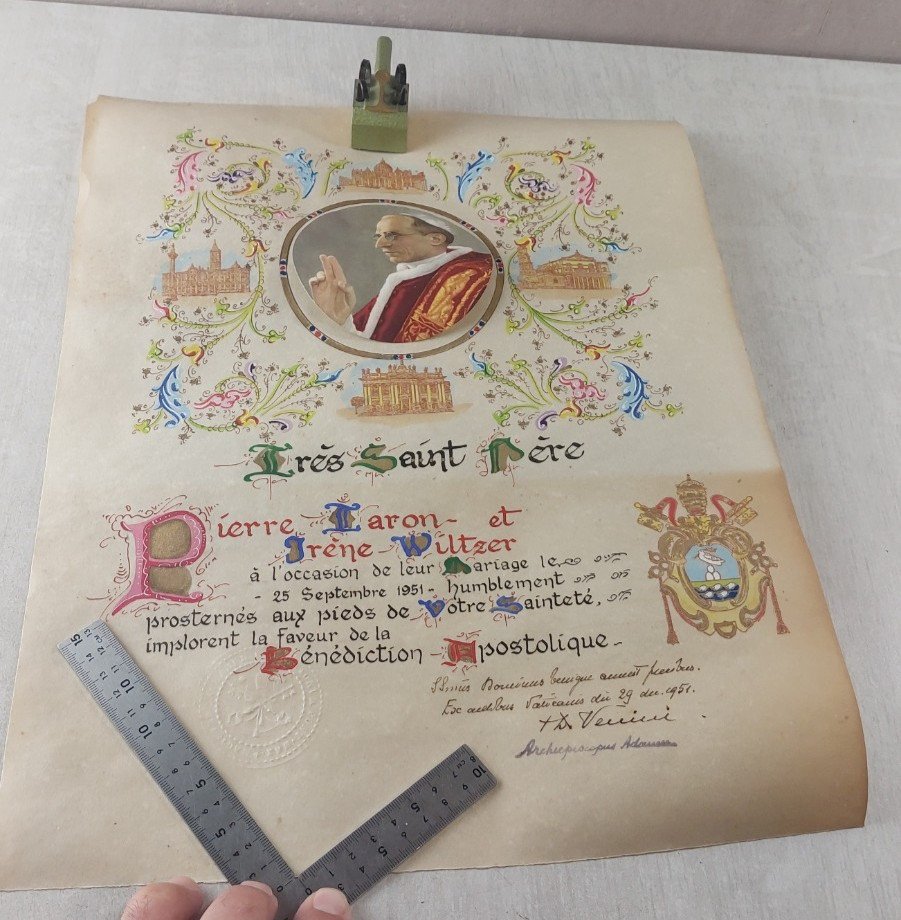 Très Saint Père
Pierre Taron - et
Irène - Wiltzer
à l'occasion de leur Mariage le
- 25 Septembre 1951 - humblement
prosternés aux pieds de Votre Sainteté,
implorent la faveur de la
Bénédiction - Apostolique -
SSmus Dominus benigne annuit precibus.
Ex aedibus Vaticanis die 29 1951.
+ D. Venini
Archiepiscopus Adanen